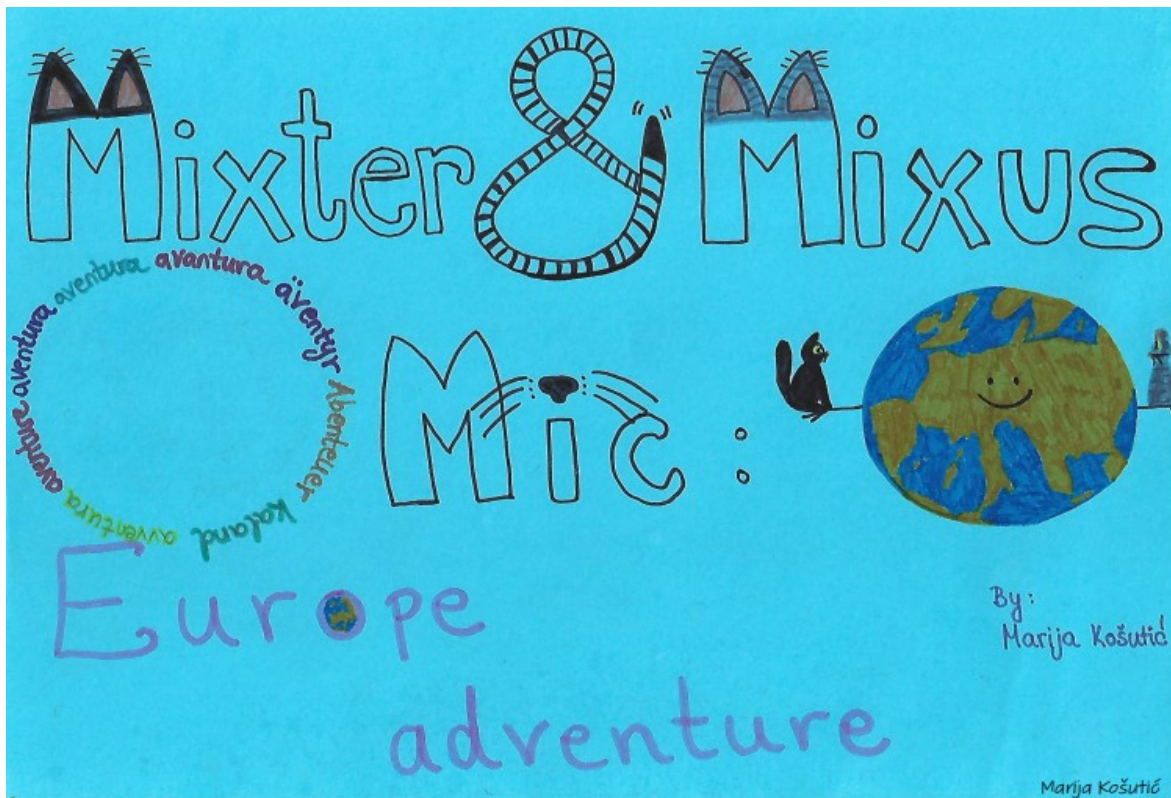 Mixter & Mixus
Mic :
aventura avantura äventyr Abenteuer kaland avventura aventura aventure aventura
Europe
adventure
By:
Marija Košutić
Marija Košutić